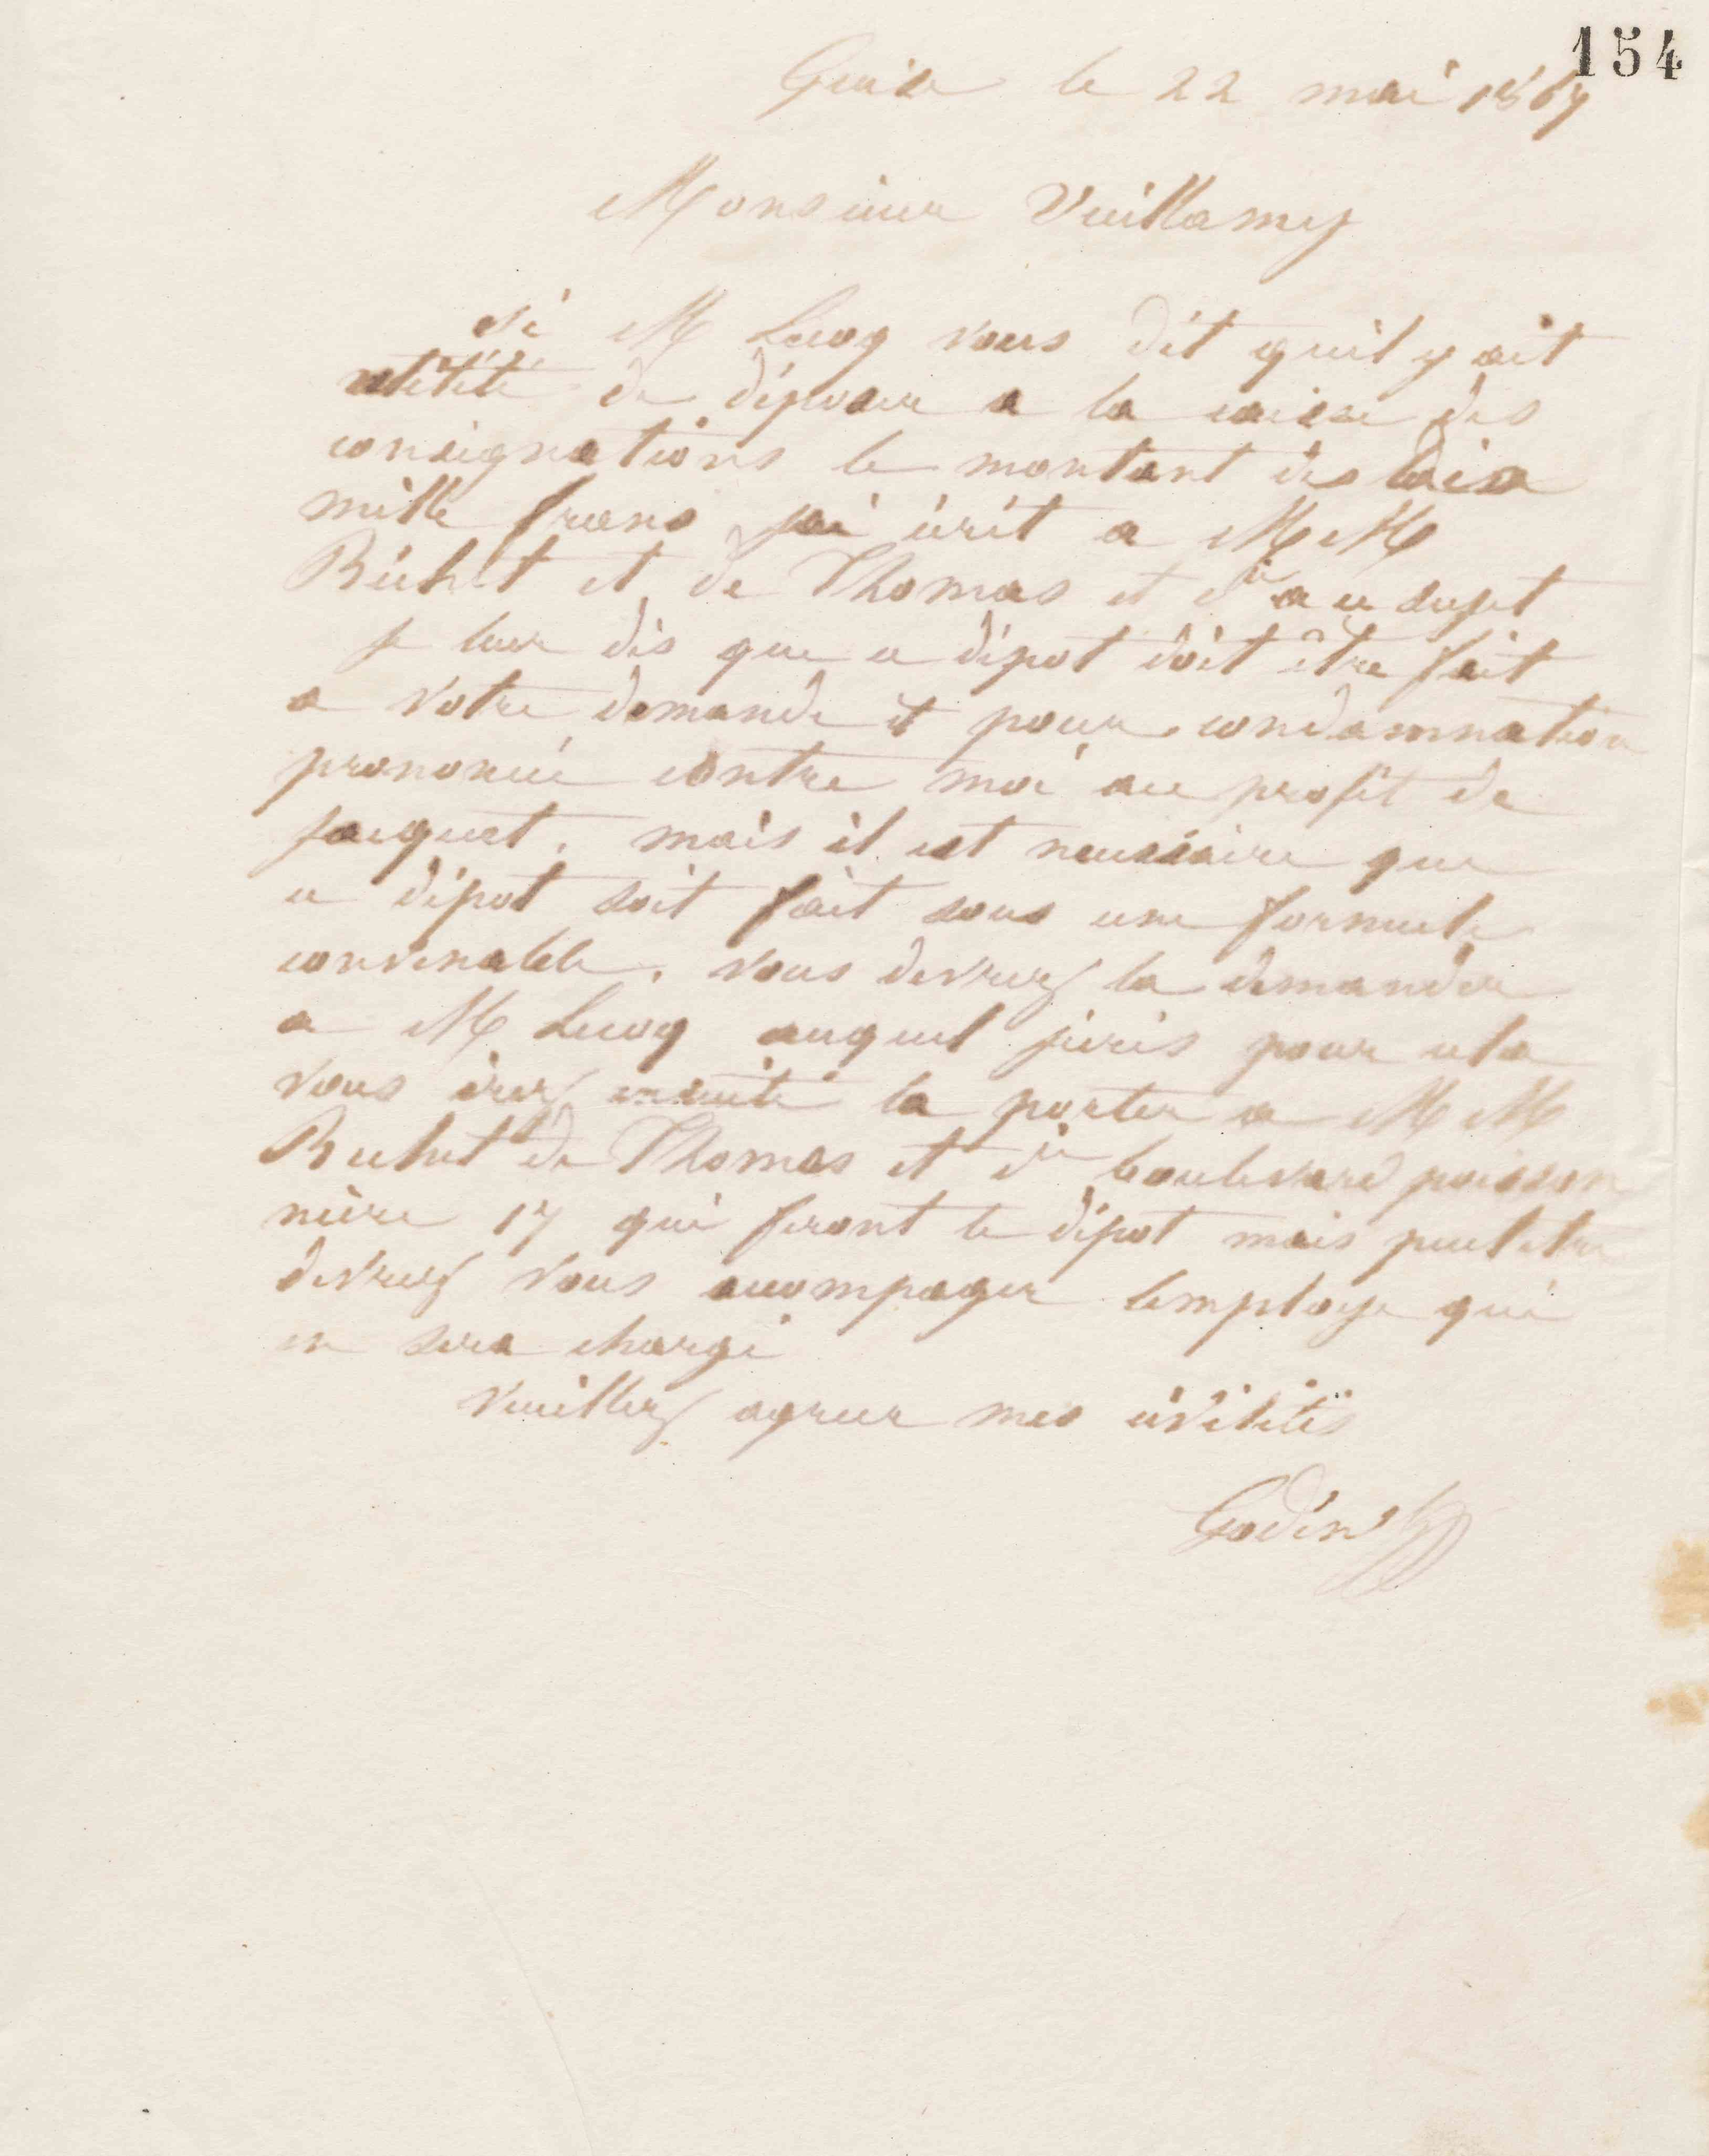 154
Guise le 22 mai 1867
Monsieur Vuillamy
si M Lecoq vous dit quil y ait
utilité de déposer a la caisse des
consignations le montant des
mille francs jai écrit a MM
Bechet et de Thomas et Cie a ce sujet
je leur dis que ce dépot doit être fait
a votre demande et pour condamnation
prononcée contre moi au profit de
jacquet. mais il est necessaire que
ce dépot soit fait sous une formule
convenable. vous devrez la demander
a M Lecoq auquel jécris pour cela
vous irez ensuite la porter a MM
Bechet de Thomas et Cie boulevard poisson
nière 17 qui feront le dépot mais peut etre
devrez vous accompager lemployé qui
en sera chargé
veuillez agreer mes civilités
Godin